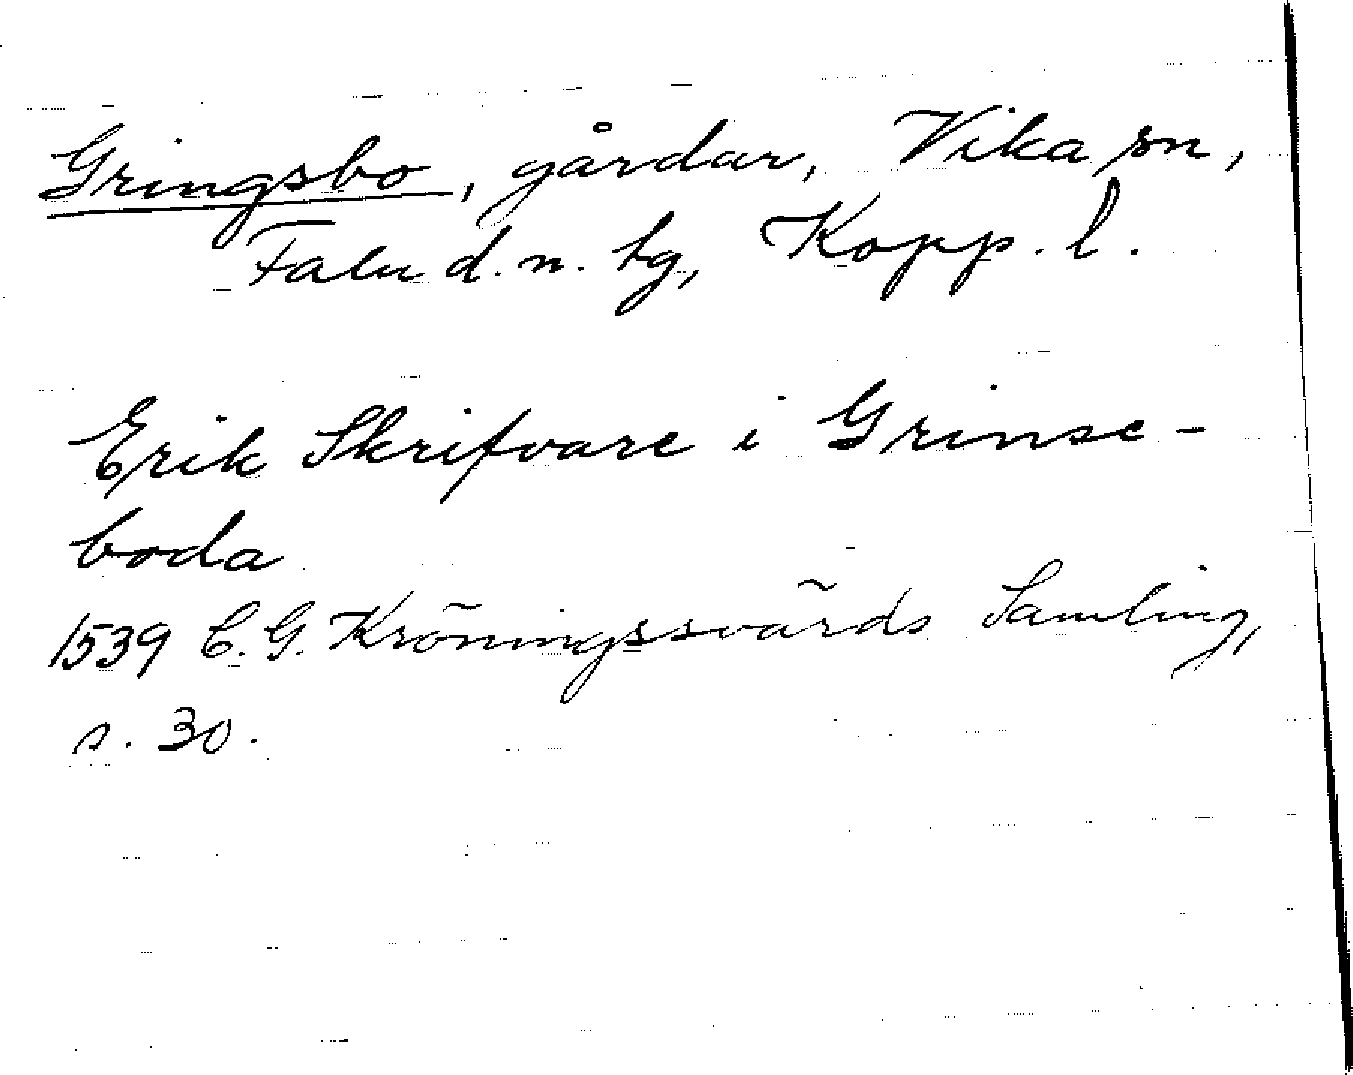 Gringsbo, gårdar, Vika sn,
Falu d.n. tg, Kopp. l.
Erik Skrifvare i Grinse-
boda
1539 C. G. Kröningssvärds Samling,
s. 30.